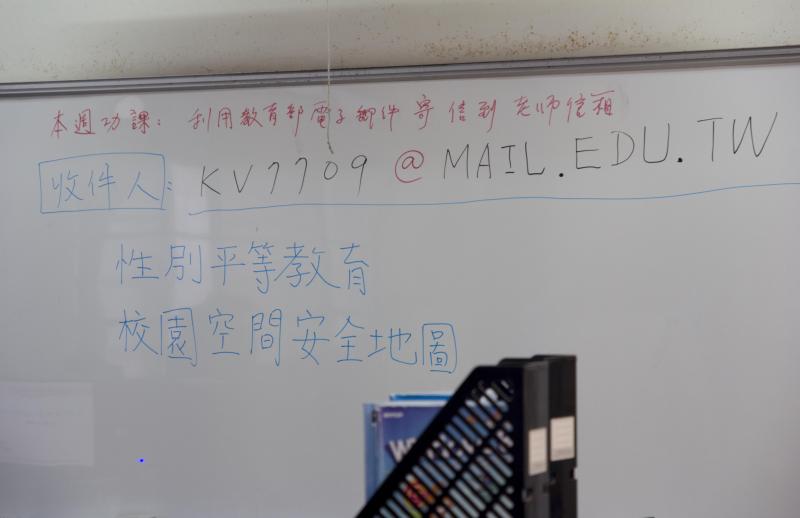 本週功課：利用教育部電子郵件寄信到老师信箱
收件人：KV7709@MAIL.EDU.TW
性別平等教育
校園空間安全地圖